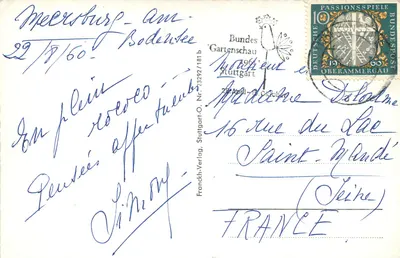 Meersburg-am
Bodensee
22/8/60.
En plein
rococo
Pensées affectueuses
Simone
Franckh-Verlag, Stuttgart-O, Nr. 13292/181 b
Bundes
Gartenschau
Stuttgart
PASSIONSSPIELE
DEUTSCHE
BUNDESPOST
10
1960
OBERAMMERGAU
Monsieur et
Madame Delorme
15 rue du Lac
Saint-Mandé
(Seine)
FRANCE